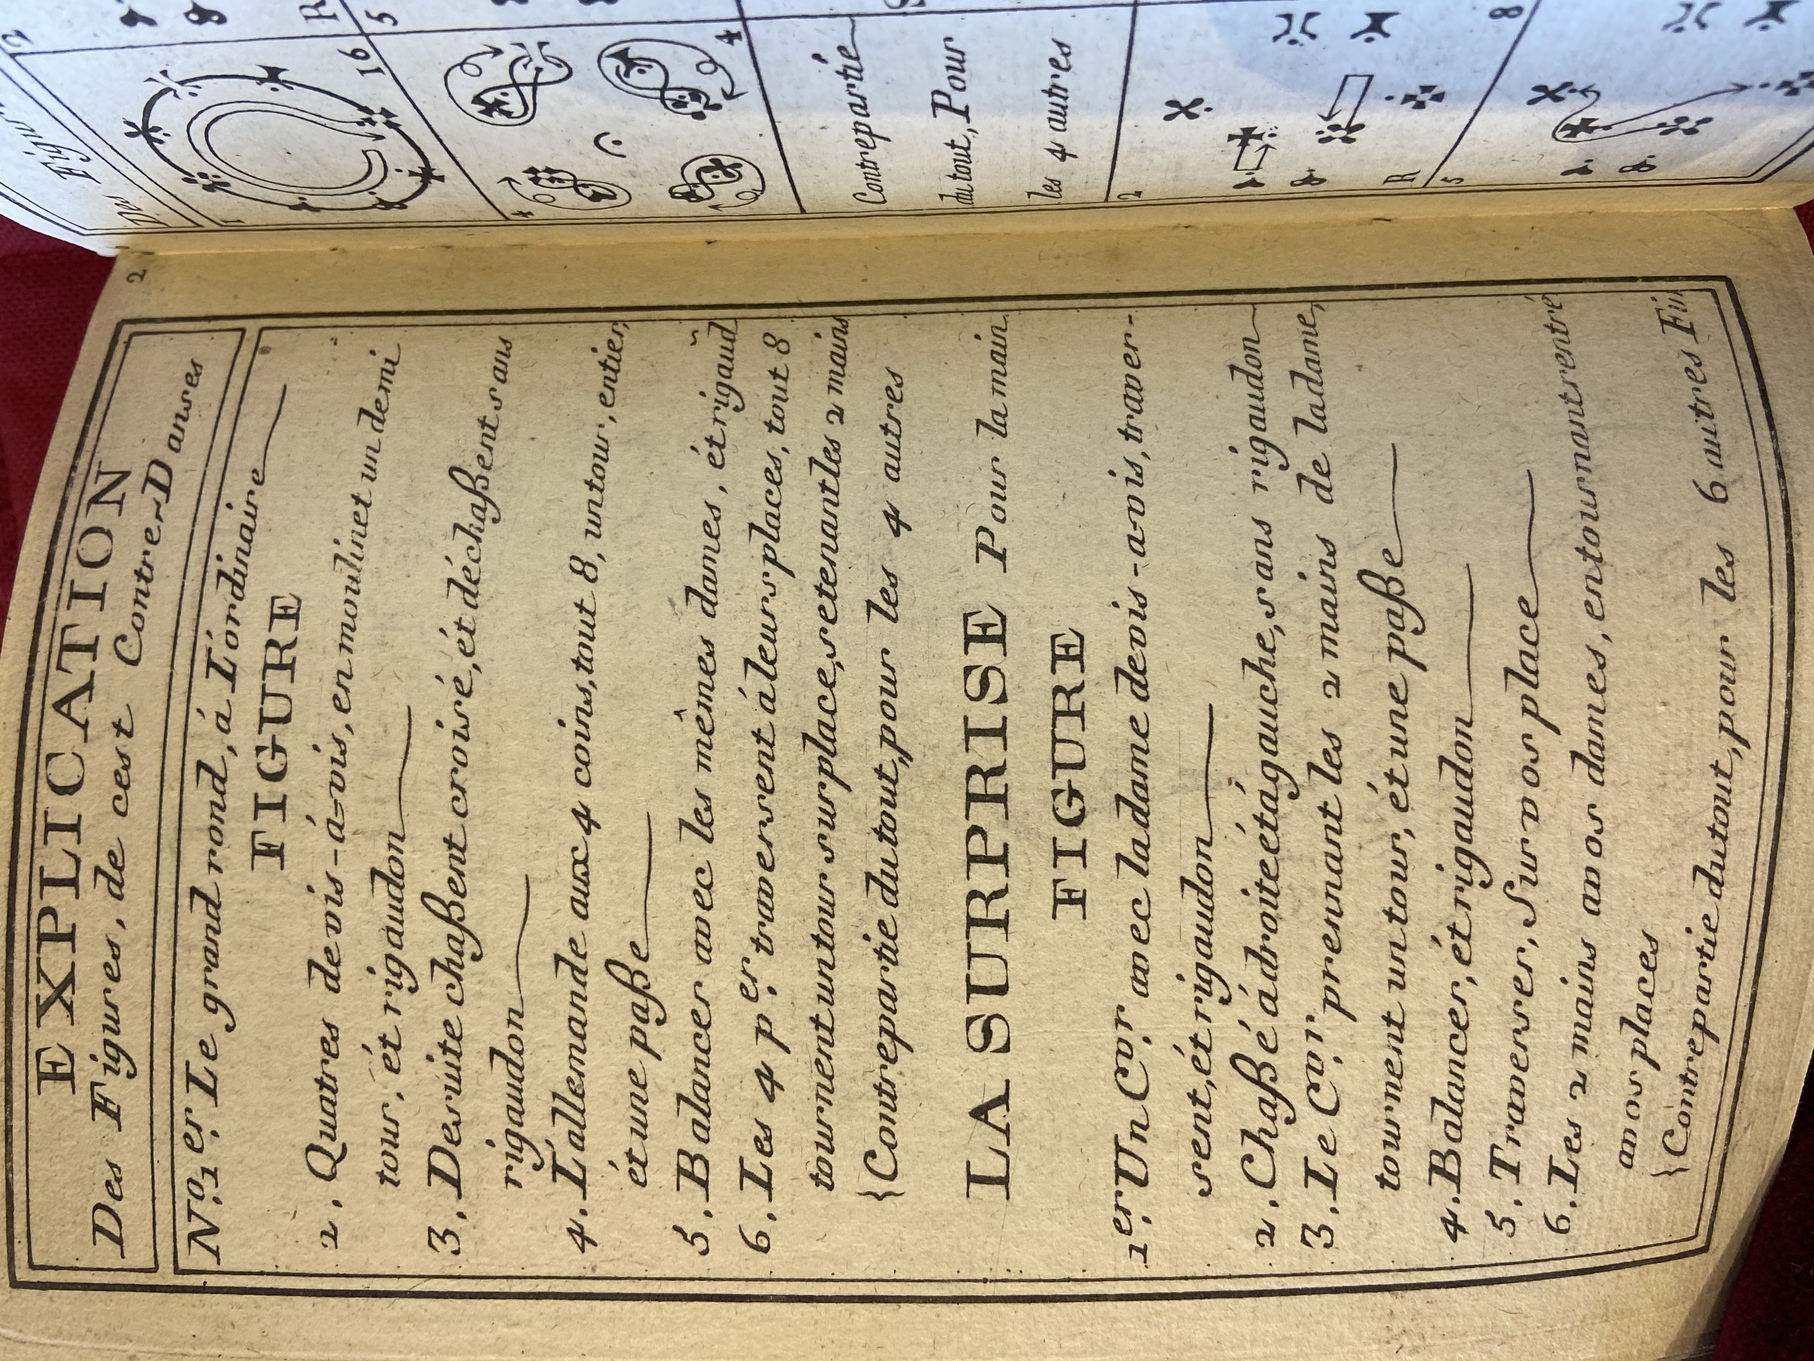 2
EXPLICATION
Des Figures, de cest ContrerDanses
No. 1er. Le grand rond, á L'ordinaire
FIGURE
2. Quatres devis-á-vis, en moulinet un demi
tour, ét rigaudon
3. Desuite chaßent croisé, ét déchaßent sans
rigaudon
4. L'allemande aux 4 coins, tout 8, un tour, entier,
ét une paße
5. Balancer avec les mêmes dames, ét rigaud
6. Les 4 per. traversent á leurs places, tout 8
tournent un tour sur place, se tenant les 2 mains
{Contrepartie du tout, pour les 4 autres
LA SURPRISE Pour la main
FIGURE
1er. Un Cvr. avec la dame devis-a-vis, traver-
sent, ét rigaudon
2. Chaßé á droite ét á gauche, sans rigaudon
3. Le Cvr. prennant les 2 mains de la dame,
tournent un tour, ét une paße
4. Balancer, ét rigaudon
5. Traverser, Sur vos place
6. Les 2 mains a vos dames, en tournant rentré
a vos places
{Contrepartie du tout, pour les 6 autres Fin
Des Figur
1
16
4
4
Contrepartie
du tout, Pour
les 4 autres
2
R
5
8
2
R
5